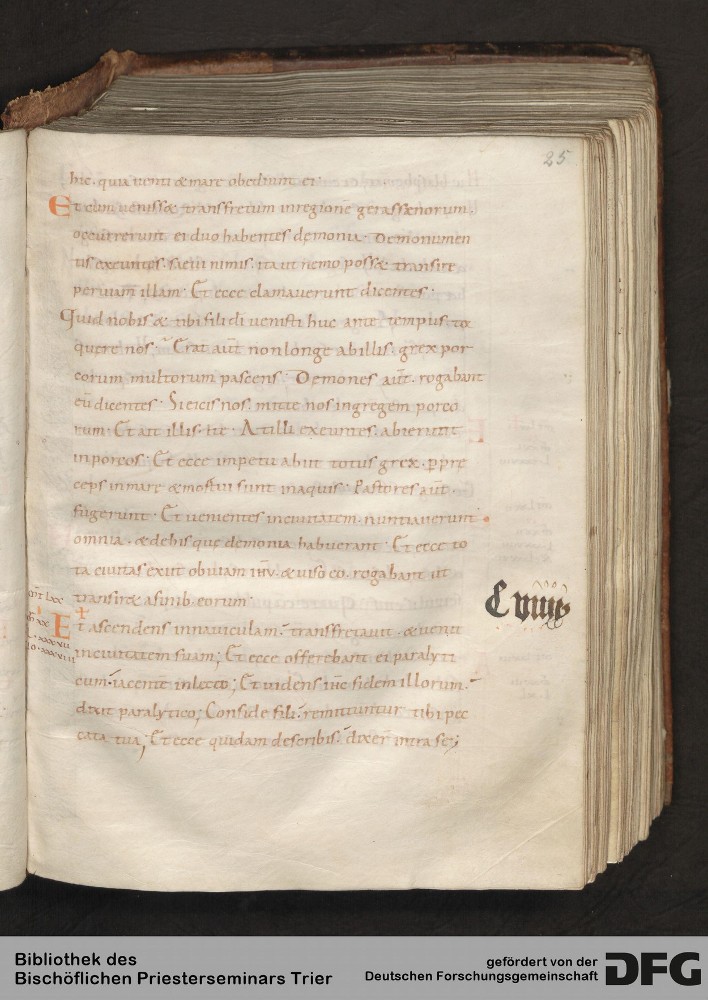 25
hic. quia uenti & mare obediunt ei.
Et cum ueniss& transfretum inregionē gerassenorum.
occurrerunt ei duo habentes demonia. Demonumen
tis exeuntes. saeui nimis. ita ut nemo poss& transire
peruiam illam. Et ecce clamauerunt dicentes.
Quid nobis & tibi fili di uenisti huc ante tempus. tor
quere nos. Erat aut̄ non longe ab illis. grex por
corum multorum pascens. Demones aut̄. rogabant
eū dicentes. Si eicis nos. mitte nos ingregem porco
rum. Et ait illis. Ite. At illi exeuntes. abierunt
inporcos. Et ecce inpetu abiit totus grex. p pre
ceps inmare & mortui sunt inaquis. Pastores aut̄
fugerunt. Et uenientes inciuitatem. nuntiauerunt
omnia. & dehis que demonia habuerant. Et ecce to
ta ciuitas exiit obuiam ihū. & uiso eo. rogabant ut
transir& a finib. eorum.
C viiii
Et ascendens innauiculam. transfretauit. & uenit
inciuitatem suam; Et ecce offerebant ei paralyti
cum. iacentē inlecto; Et uidens ihc fidem illorum.
dixit paralytico; Confide fili. remittuntur tibi pec
cata tua; Et ecce quidam describis. dixer̄ intra se;
Bibliothek des
Bischöflichen Priesterseminars Trier
gefördert von der
Deutschen Forschungsgemeinschaft
DFG